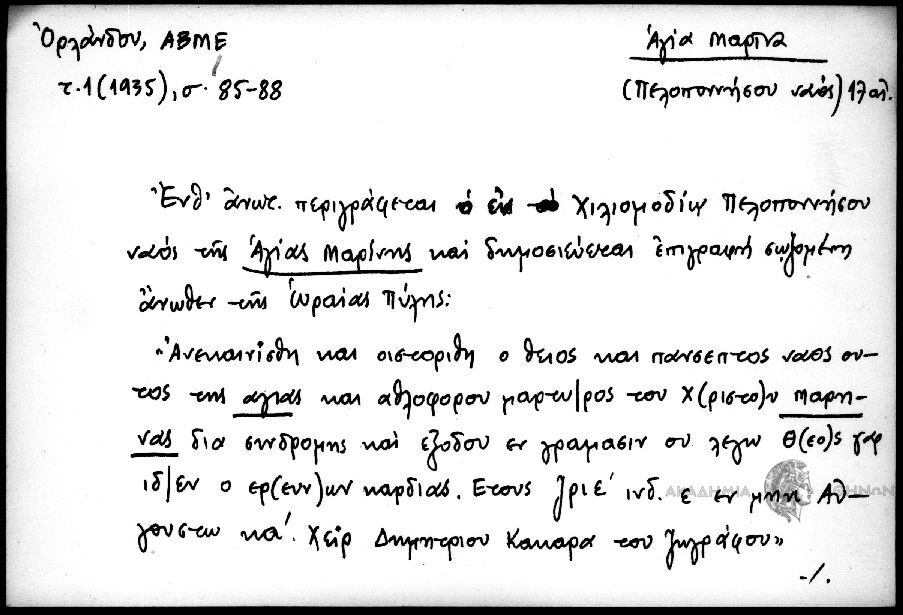 Ὀρλάνδου, ΑΒΜΕ
τ. 1 (1935), σ. 85-88
Ἁγία Μαρίνα
(Πελοποννήσου ναός) 17 αἰ.
Ἐνθ' ἄνωτ. περιγράφεται ὁ ἐν Χιλιομοδίῳ Πελοποννήσου
ναός τῆς Ἁγίας Μαρίνης καί δημοσιεύεται ἐπιγραφή σῳζομένη
ἄνωθεν τῆς Ὡραίας Πύλης:
"Ἀνεκαινίσθη και οιστοριθη ο θειος και πανσεπτος ναος ου-
τος της αγιας και αθλοφορου μαρτυ/ρος του Χ(ριστο)υ Μαρη-
νας δια συνδρομης και εξοδου εν γραμασιν ου λεγω Θ(εο)ς γαρ
ιδ/εν ο ερ(ευν)ων καρδιας. Ετους ͵ζριε' ινδ. ε εν μηνι Αυ-
γουστω κα'. Χειρ Δημητριου Κακαρα του ζωγράφου»
-/.
ΑΚΑΔΗΜΙΑ ΑΘΗΝΩΝ